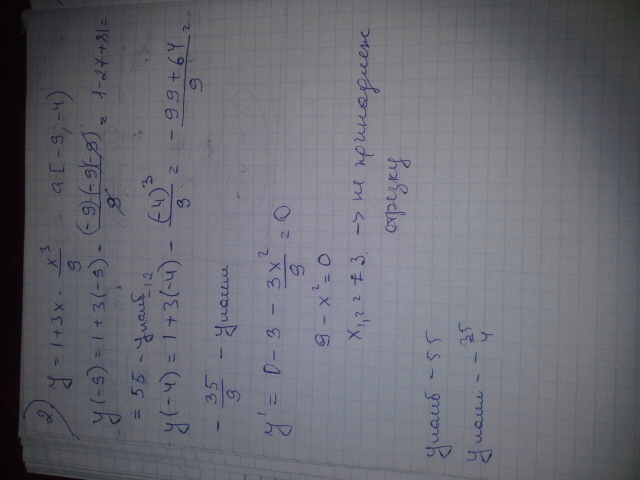 2) y = 1 + 3x - x³/9 a [-9; -4)
y(-9) = 1 + 3(-9) - (-9)(-9)(-9)/9 = 1 - 27 + 81 =
= 55 - yнаиб
y(-4) = 1 + 3(-4) - (-4)³/9 = - 99 + 64/9 =
- 35/9 - yнаим
y' = 0 - 3 - 3x²/9 = 0
9 - x² = 0
x₁,₂ = ±3 -> не принадлеж
отрезку
yнаиб - 55
yнаим - - 35/4